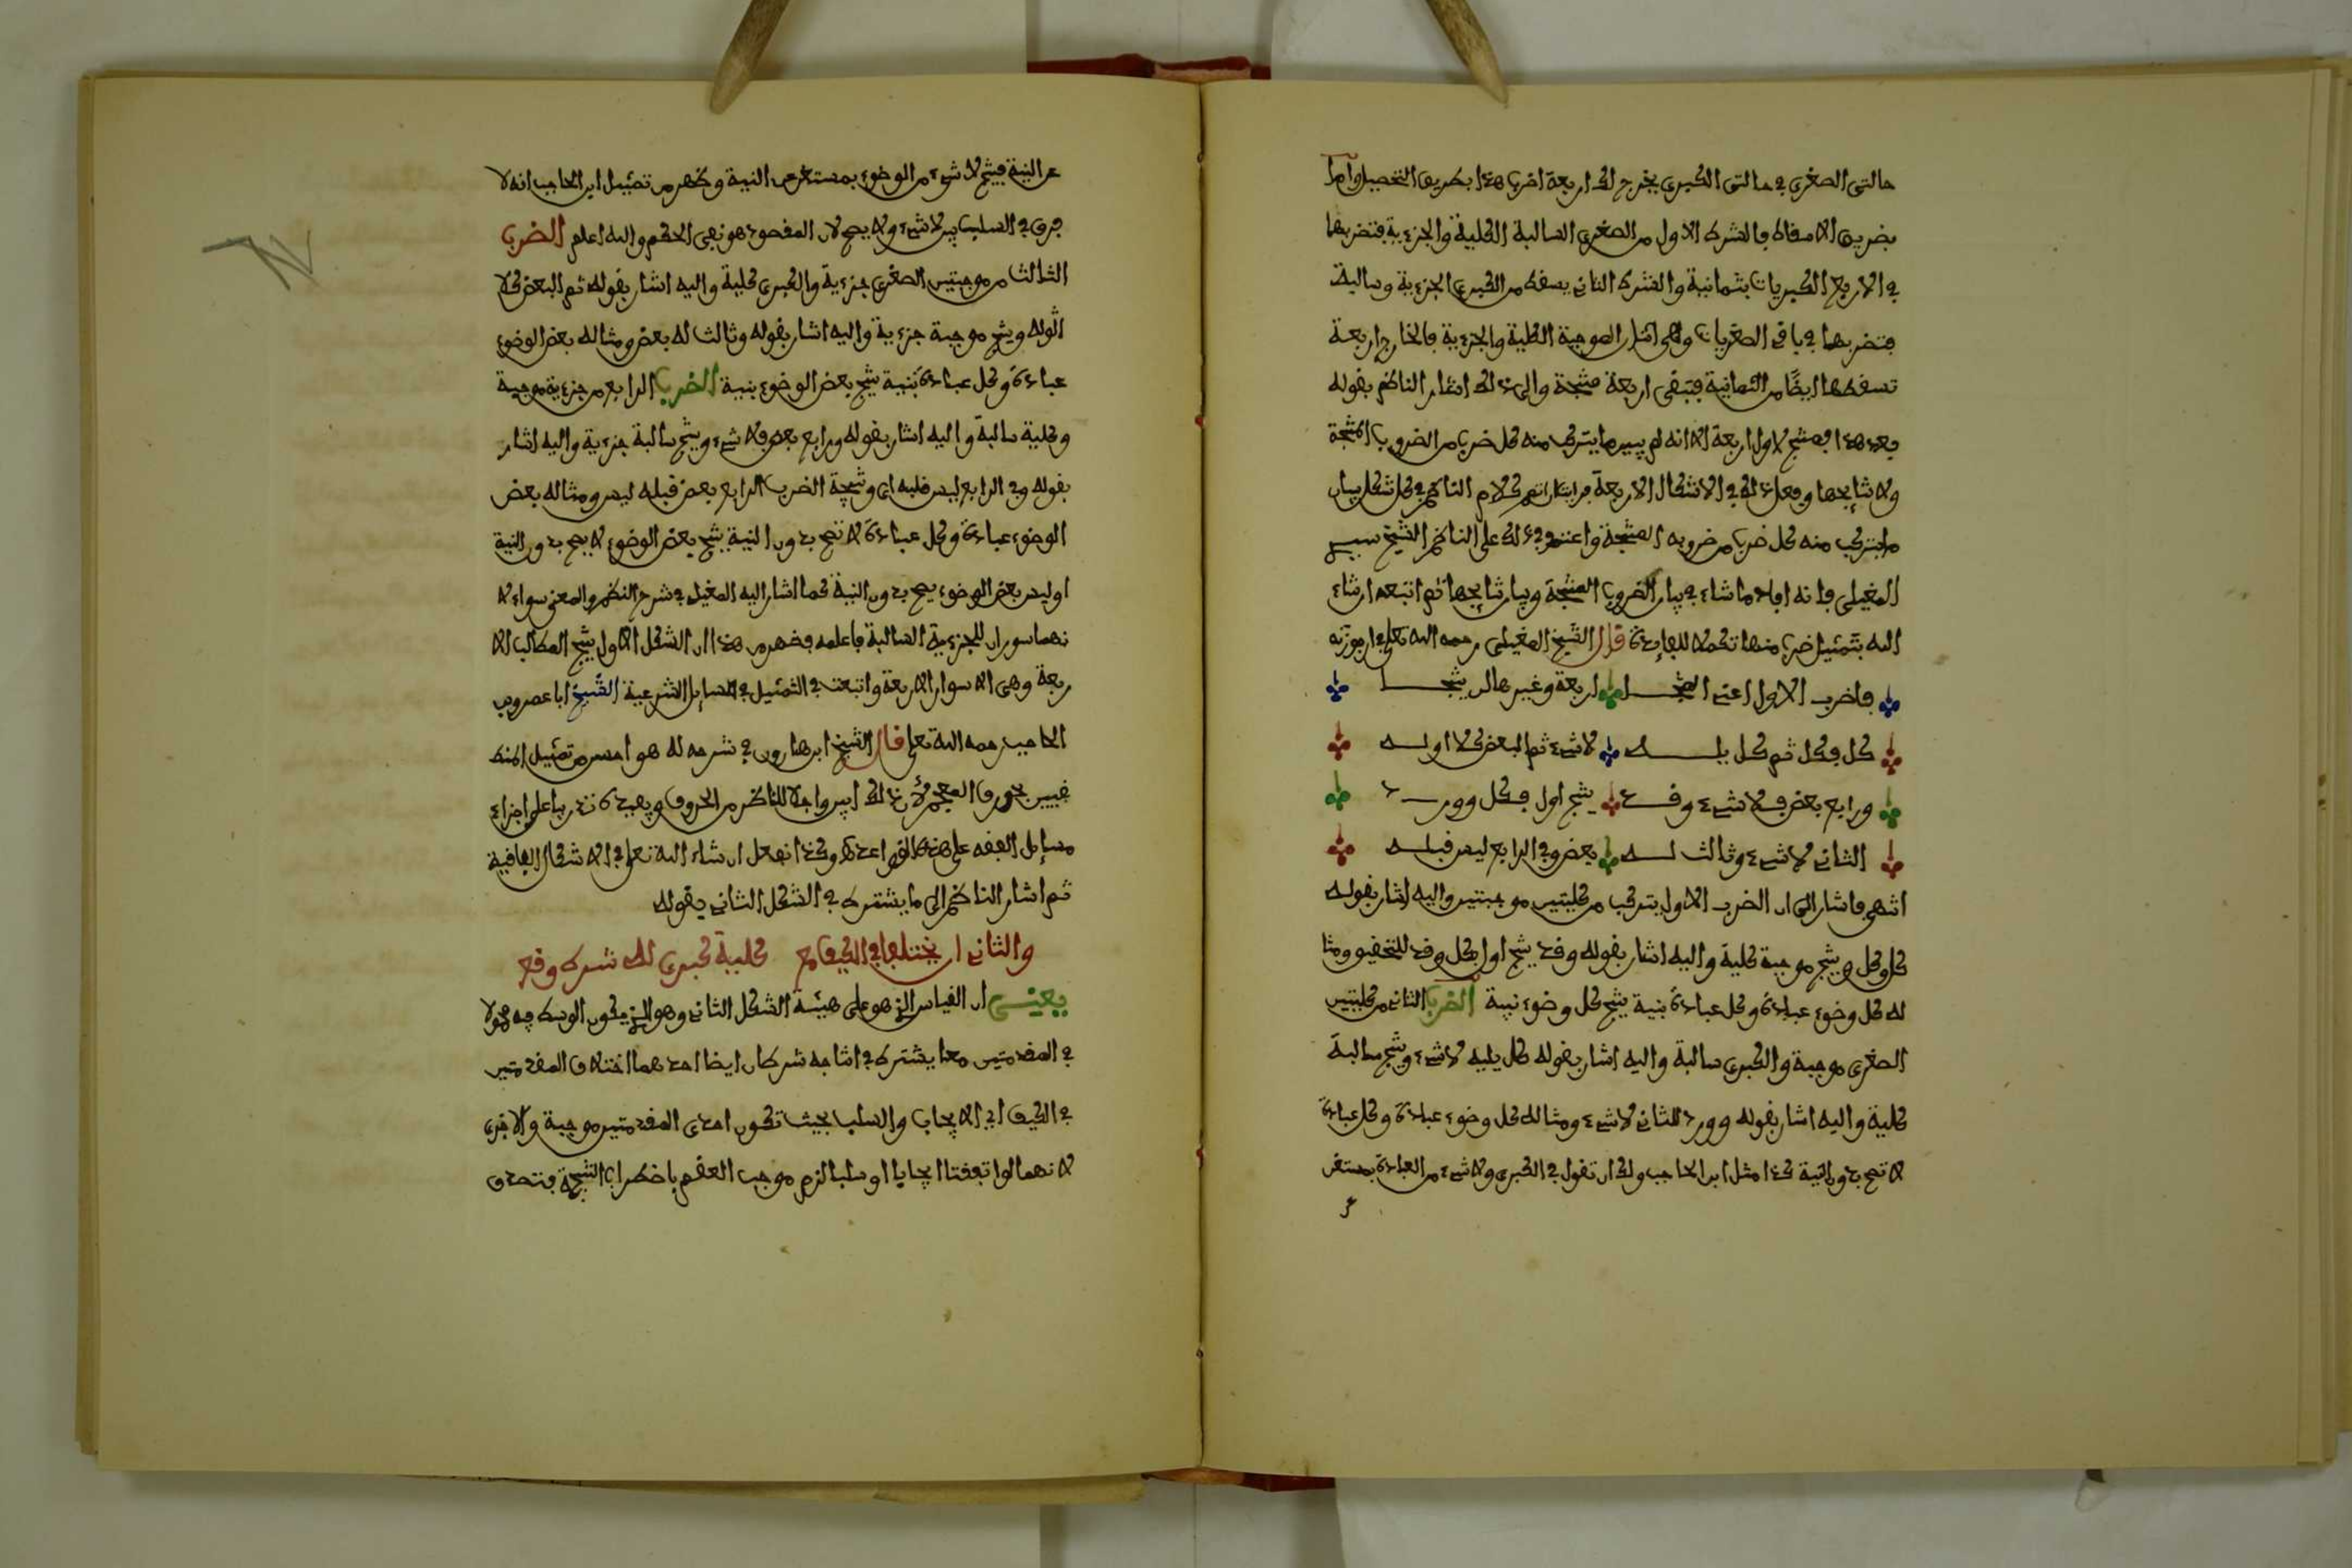 حالتى الصغرى في حالتى الكبرى يخرج لك اربعة اضرب هذا بطريق التحصيل واما
بطريق الاسقاط فالشرط الاول من الصغرى السالبة الكلية والجزءية فتضربهما
في الاربع الكبريات بثمانية والشرط الثانى يسقط من الكبرى الجزءية وسالبة
فتضربهما في باقى الصغريات وهى اثنان الموجبة الكلية والجزءية فالخارج اربعة
تسقطها ايضا من الثمانية فتبقى اربعة منتجة والى ذلك اشار الناظم بقوله
بعد هذا فمنتج لاول اربعة الا انه لم يبين ما يتركب منه كل ضرب من الضروب المنتجة
ولا نتايجها وفعل ذلك في الاشكال الاربعة كلام الناظم في كل شكل ببيان
ما يتركب منه كل ضرب من ضروبه المنتجة واعتمد في ذلك على الناظم الشيخ سيدى
المغيلى فانه اجاد ما شاء في بيان الضروب المنتجة وبيان نتايجها ثم اتبعه ان شاء
الله بتمثيل ضرب منها تكملا للفايدة قال الشيخ المغيلى رحمه الله تعلى في ارجوزته
فاضرب الاول اعنى المنتجا اربعة وغيرها لن ينتجا
كل فكل ثم كل يله لاشىء ثم البعض كلا اوله
ورابع بعض فلا شىء وفد ينتج اول فكل وورد
الثانى لا شىء وثالث له بعض وفي الرابع ليس فبله
انتهى فاشار الى ان الضرب الاول يتركب من كليتين موجبتين واليه اشار بقوله
كل وكل وينتج موجبة كلية واليه اشار بقوله وفد ينتج اول فكل وفد للتحقيق ومثا
له كل وضوء عبادة وكل عبادة بنية ينتج كل وضوء بنية الضرب الثانى من كليتين
الصغرى موجبة والكبرى سالبة واليه اشار بقوله كل يليه لا شىء وينتج سالبة
كلية واليه اشار بقوله وورد للثانى لا شىء ومثاله كل وضوء عبادة وكل عبادة
لا تصح بدون النية كذا مثل ابن الحاجب ولك ان تقول في الكبرى ولا شىء من العبادة بمستغن
عن
عن النية فينتج لا شىء من الوضوء بمستغن عن النية وظهر من تمثيل ابن الحاجب انه لا
فرق في السلب بين لا شىء ولا يصح لان المقصود هو نفى الحكم والله اعلم الضرب
الثالث من موجبتين الصغرى جزءية والكبرى كلية واليه اشار بقوله ثم البعض كلا
اوله وينتج موجبة جزءية واليه اشار بقوله وثالث له بعض ومثاله بعض الوضوء
عبادة وكل عبادة بنية ينتج بعض الوضوء بنية الضرب الرابع من جزءية موجبة
وكلية سالبة واليه اشار بقوله ورابع بعض فلا شىء وينتج سالبة جزءية واليه اشار
بقوله وفي الرابع ليس فلبه اى ونتيجة الضرب الرابع بعض قبله ليس ومثاله بعض
الوضوء عبادة وكل عبادة لا تصح بدون النية ينتج بعض الوضوء لا يصح بدون النية
او ليس بعض الوضوء يصح بدون النية كما اشار اليه المغيلى في شرح النظم والمعنى سواء لا
نهما سوران للجزءية السالبة فاعلمه فظهر من هذا ان الشكل الاول ينتج المطالب الا
ربعة وهى الاسوار الاربعة واتبعت في التمثيل في المسايل الشرعية الشيخ ابا عمرو بن
الحاجب رحمه الله تعلى قال الشيخ ابن هارون في شرحه له هو احسن من تمثيل المنط
قيين بحروف المعجم لان ذلك ابين واجلا للناظر من الحروف ويفيده تدريبا على اجراء
مسايل الفقه على هذه القواعد وكذا نفعل ان شاء الله تعلى في الاشكال الباقية
ثم اشار الناظم الى ما يشترط في الشكل الثانى بقوله
والثانى ان يختلفا في الكيف مع كلية كبرى له شرط وقع
يعنى ان القياس الذى هو على هيئة الشكل الثانى وهو الذى يكون الوسط فيه محمولا
في المقدمتين معا يشترط في انتاجه شرطان ايضا احدهما اختلاف المقدمتين
في الكيف اى الايجاب والسلب بحيث تكون احدى المقدمتين موجبة والاخرى
لانهما لو اتفقتا ايجابا او سلبا لزم موجب العقم باضطراب النتيجة فتصدق